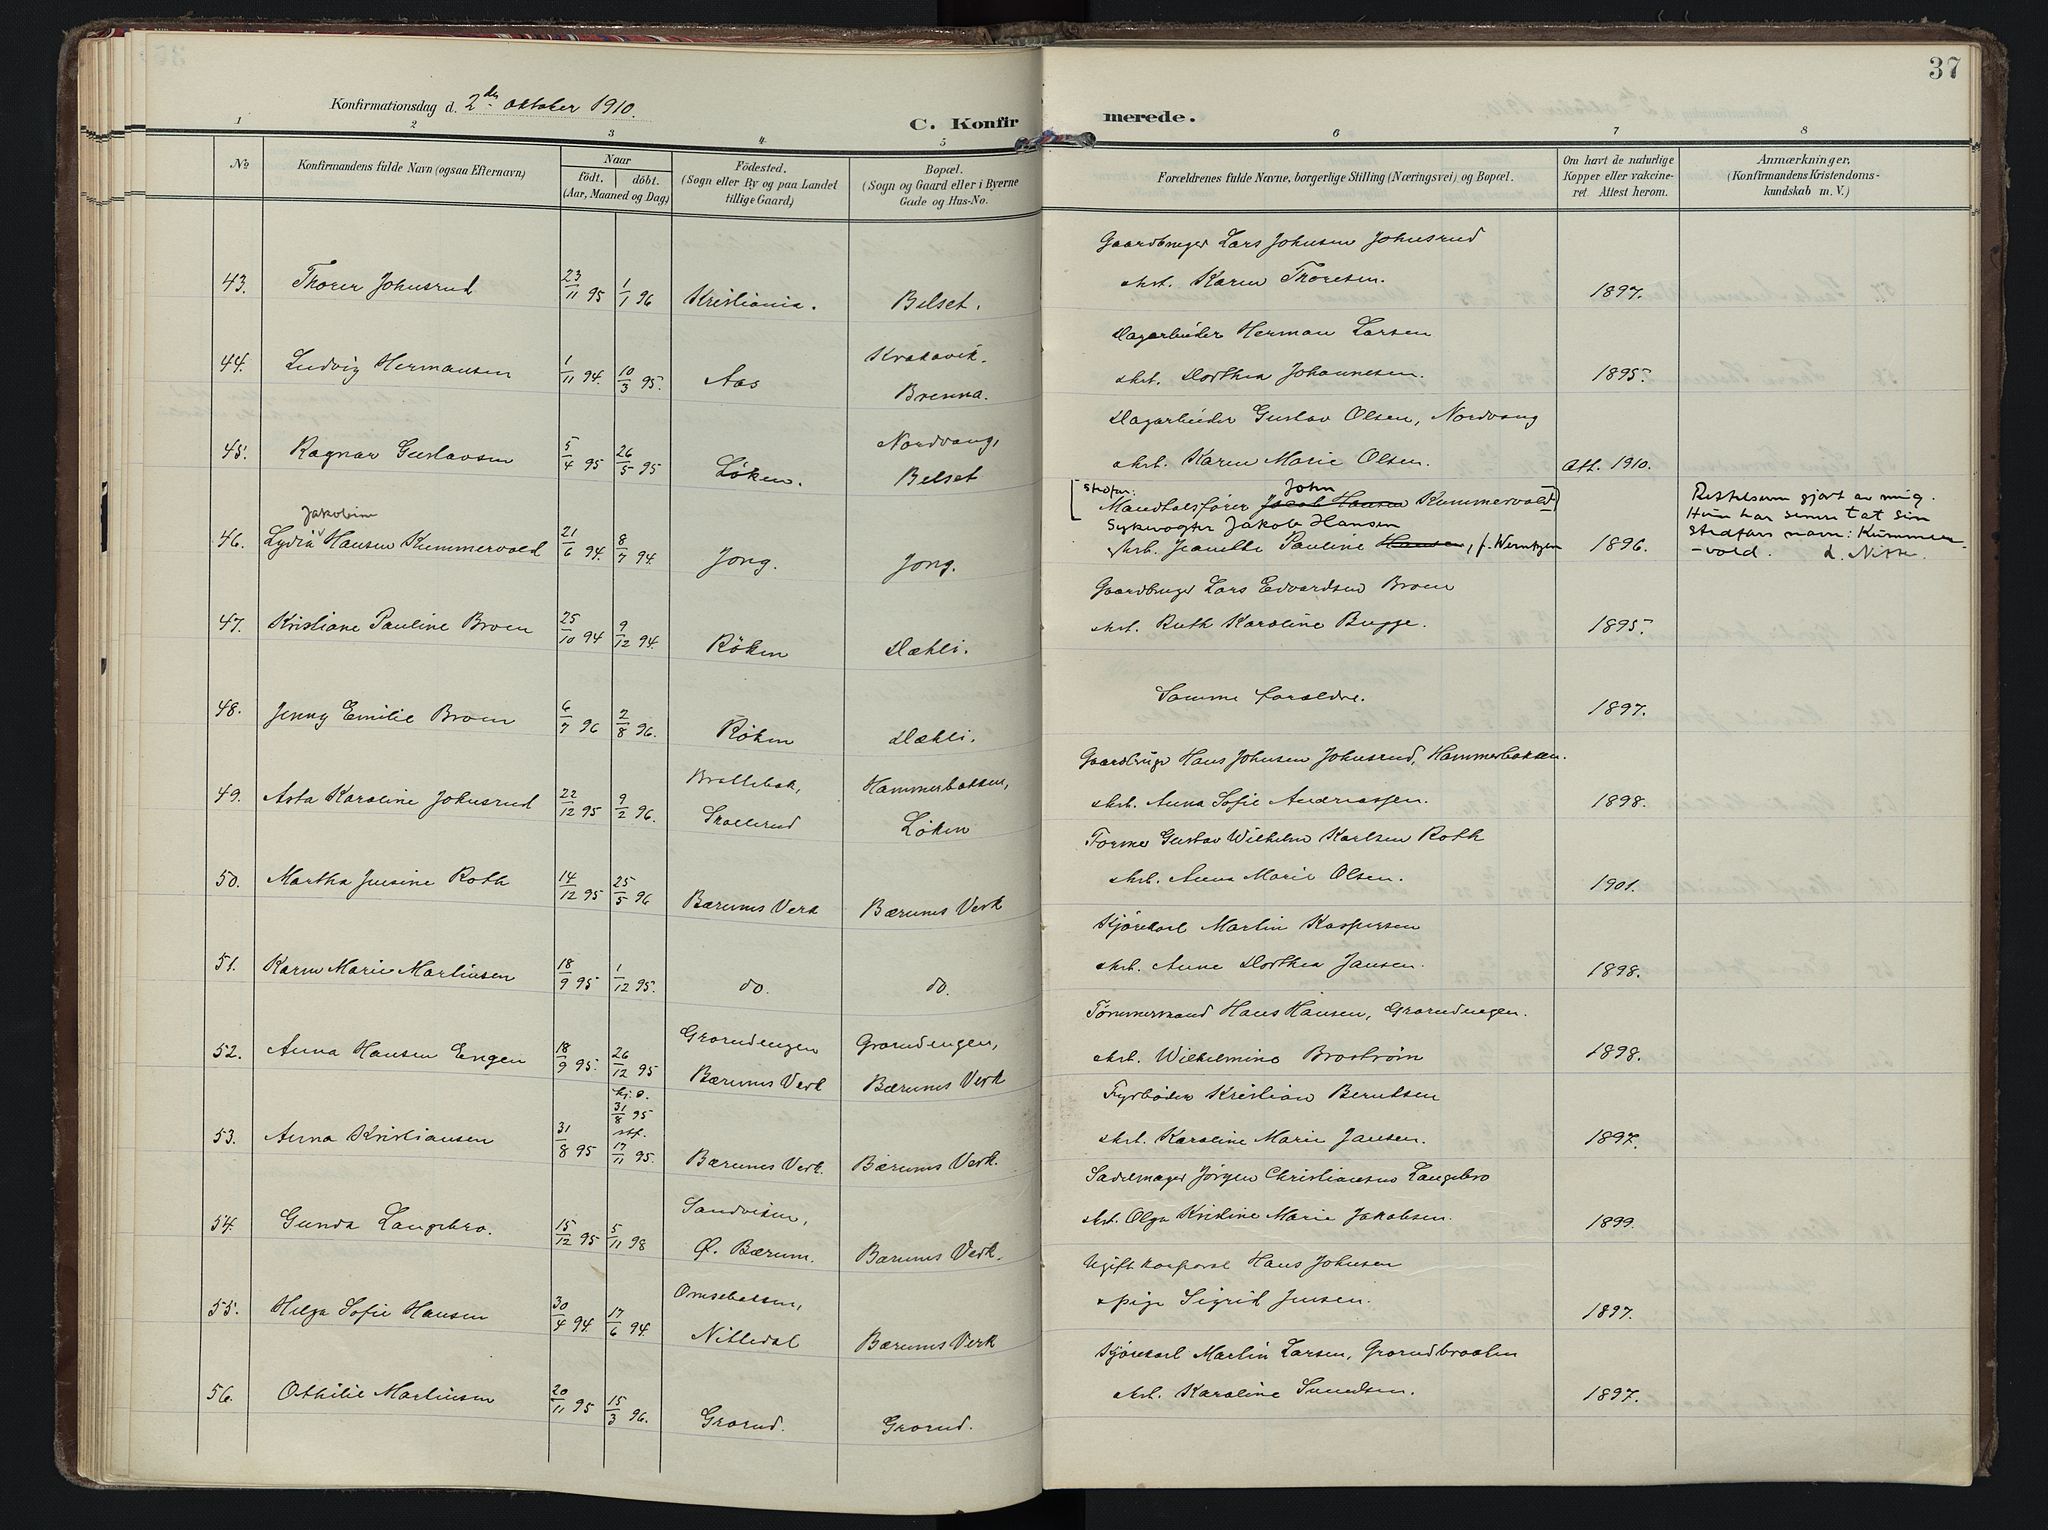 37
Konfirmationsdag d. 2den oktober 1910.
C. Konfirmerede.
1 2 3 4 5 6 7 8
No
Konfirmandens fulde Navn (ogsaa Efternavn)
Naar
født. döbt.
(Aar, Maaned og Dag)
Födested.
(Sogn eller By og paa Landet
tillige Gaard)
Bopæl.
(Sogn og Gaard eller i Byerne
Gade og Hus-No.
Forældrenes fulde Navne, borgerlige Stilling (Næringsvei) og Bopæl.
Om havt de naturlige
Kopper eller vakcine-
ret. Attest herom.
Anmærkninger,
(Konfirmandens Kristendoms-
kundskab m. V.)
Gaardbruger Lars Johnsen Johnsrud
43. Thorer Johnsrud 23/11 95 1/1 96 Kristiania. Belset. Hst. Karen Thoresen. 1897.
Dagarbeider Herman Larsen
44. Ludvig Hermansen 1/11 94. 10/3 95. Aas Krakavik. Brenna. Hst. Dorthea Johannesen. 1895.
Dagarbeider Gustav Olsen, Nordvang
45. Ragnar Gustavsen 5/4 95 26/5 95 Løken. Nordvang, Belset Hst. Karen Marie Olsen. Att. 1910.
[Stedfar: Mandtalsfører John Jacob Hansen Kummervold]
Sykevogter Jakob Hansen
46. Lydia Jakobine Hansen Kummervold 21/6 94. 8/7 94. Jong. Jong. Hst. Jeanette Pauline Hansen, f. Werntzen 1896.
Rettelsen gjort av mig.
Hun har senere tat sin
stedfars navn: Kummer-
-vold. d. Nitte.
Gaardbruger Lars Edvardsen Broen
47. Kristiane Pauline Broen 25/10 94 9/12 94. Röken Dæhli. Hst. Ruth Karoline Bugge. 1895.
48. Jenny Emilie Broen 6/7 96 2/8 96. Röken Dæhli. Samme forældre. 1897.
Gaardbruger Hans Johnsen Johnsrud, Hammerbakken.
49. Asta Karoline Johnsrud 22/12 95 9/2 96. Brattebak, Skollerud Hammerbakken, Løken Hst. Anna Sofie Andreassen. 1898.
Former Gustav Wilhelm Karlsen Roth
50. Martha Jensine Roth 14/12 95 25/5 96 Bærums Verk Bærums Verk Hst. Anna Marie Olsen. 1901.
Kjørekarl Martin Kaspersen
51. Karen Marie Martinsen 18/9 95 1/12 95. do. do. Hst. Anne Dorthea Jansen. 1898.
Tømmermand Hans Hansen, Grorudengen.
52. Anna Hansen Engen 18/9 95. 26/12 95 Grorudengen Bærums Verk Grorudengen, Bærums Verk Hst. Wilhelmine Broström 1898.
Fyrbøder Kristian Berntsen
53. Anna Kristiansen 31/8 95 hj. d. 31/8 95 stf. 17/11 95. Bærums Verk. Bærums Verk. Hst. Karoline Marie Jansen. 1897.
Sadelmager Jørgen Christiansen Langebro
54. Gunda Langebro. 15/12 95 5/11 98 Sandviken, Ø. Bærum. Bærums Verk. Hst. Olga Kristine Marie Jakobsen. 1899.
Ugift korporal Hans Johnsen
55. Helga Sofie Hansen 30/4 94. 17/6 94. Nittedal Bærums Verk Pige Sigrid Jensen. 1897.
Kjørekarl Martin Larsen, Grorudbraaten
56. Othilie Martinsen 20/11 95 15/3 96. Grorud. Grorud. Hst. Karoline Svendsen. 1897.